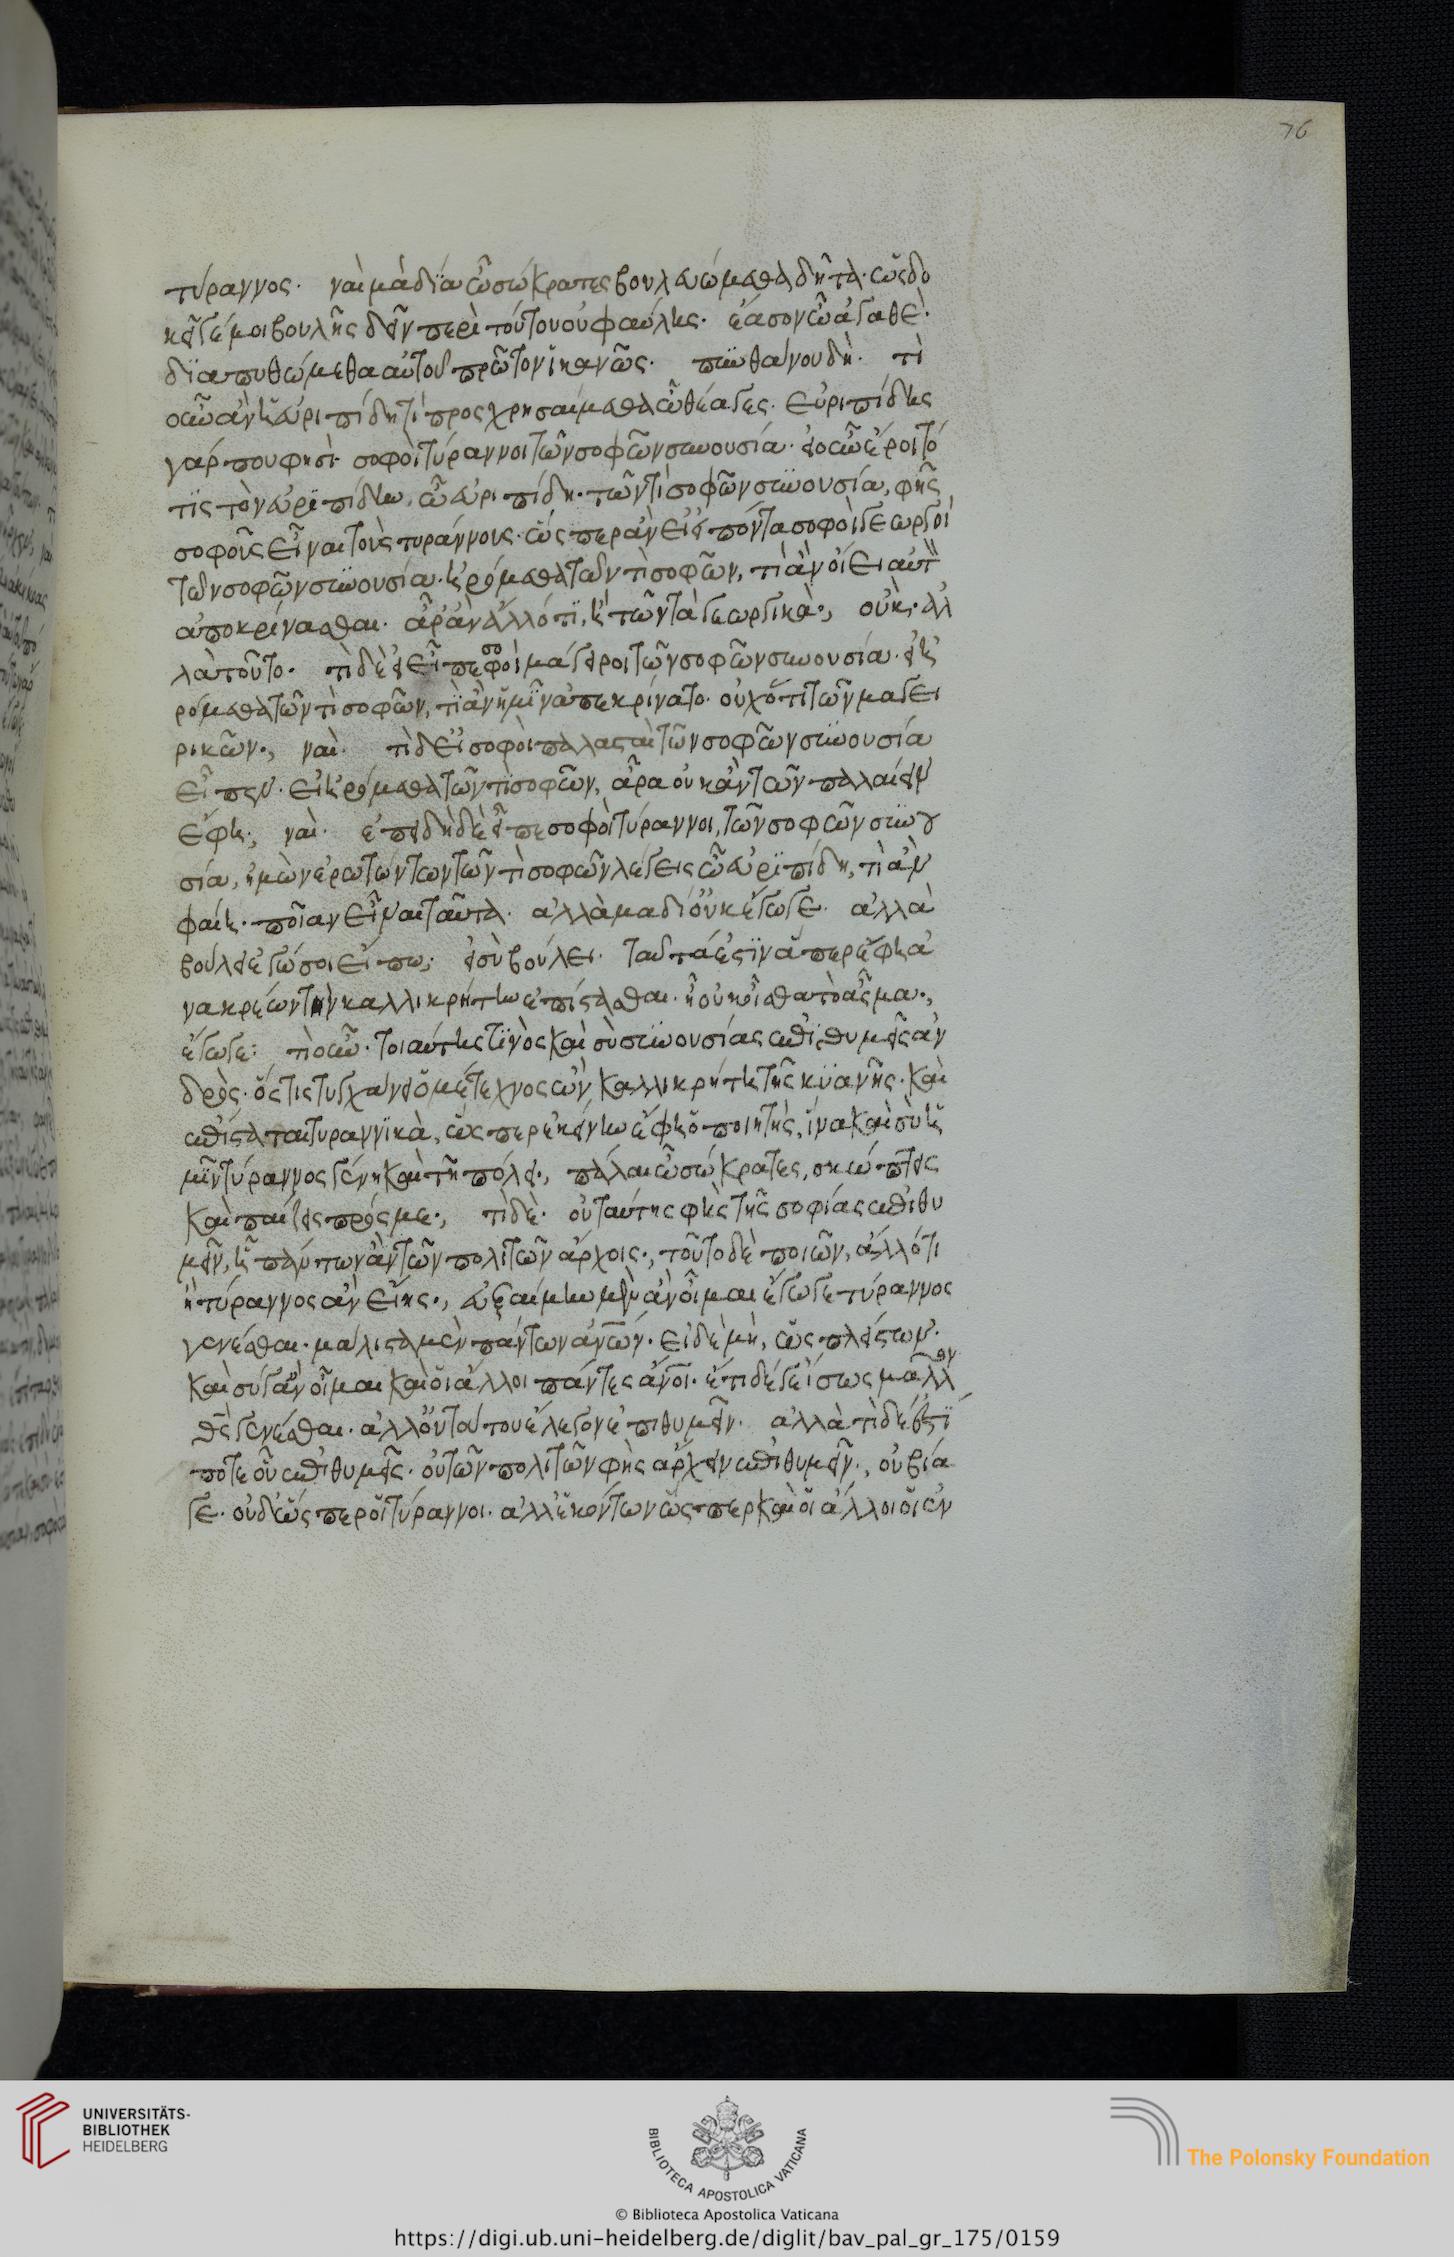 76
τύραννος. ναὶ μὰ δία ὦ σώκρατες βουλευώμεθα δῆτα. ὡς δο
κεῖ γέ μοι βουλῆς δεῖν περὶ τούτου οὐ φαύλης. ἔασον ὦ ἀγαθέ.
διαπυθώμεθα αὐτοῦ πρῶτον ἱκανῶς. πυνθάνου δή. τί
οὖν ἂν εἰ εὐριπίδη τι προσχρησαίμεθα ὦ θέαγες. εὐριπίδης
γάρ που φησὶ σοφοὶ τύραννοι τῶν σοφῶν συνουσία. εἰ οὖν ἔροιτό
τις τὸν εὐριπίδην, ὦ εὐριπίδη. τῶν τί σοφῶν συνουσία, φῂς
σοφοὺς εἶναι τοὺς τυράννους. ὥσπερ ἂν εἰ εἰπόντα σοφοὶ γεωργοὶ
τῶν σοφῶν συνουσία. ἠρόμεθα τῶν τί σοφῶν, τί ἂν οἴει αὐτὸν
ἀποκρίνασθαι. ἆρ' ἂν ἄλλό τι, ἢ τῶν τὰ γεωργικά., οὐκ. ἀλ
λὰ τοῦτο. τί δὲ εἰ εἶπε σοφοὶ μάγειροι τῶν σοφῶν συνουσία. εἰ ἠ
ρόμεθα τῶν τί σοφῶν, τί ἂν ἡμῖν ἀπεκρίνατο. οὐχ ὅτι τῶν μαγει
ρικῶν., ναί. τί δ' εἰ σοφοὶ παλαισταὶ τῶν σοφῶν συνουσία
εἶπεν. εἰ ἠρόμεθα τῶν τί σοφῶν, ἆρα οὐκ ἂν τῶν παλαίειν
ἔφη., ναί. ἐπειδὴ δὲ εἶπε σοφοὶ τύραννοι, τῶν σοφῶν συνου
σία, ἡμῶν ἐρωτώντων τῶν τί σοφῶν λέγεις ὦ εὐριπίδη, τί ἂν
φαίη. ποῖα ἂν εἶναι ταῦτα. ἀλλὰ μὰ δί' οὐκ ἔγωγε. ἀλλὰ
βούλει ἐγώ σοι εἴπω. εἰ σὺ βούλει. ταῦτά ἐστιν ἅπερ ἔφη ἀ
νακρέων τὴν καλλικρήτην ἐπίστασθαι. ἢ οὐκ οἶσθα τὸ ᾆσμα.,
ἔγωγε: τί οὖν. τοιαύτης τινὸς καὶ σὺ συνουσίας ἐπιθυμεῖς ἀν
δρός. ὅστις τυγχάνει ὁμότεχνος ὢν καλλικρήτῃ τῆς κυάνης. καὶ
ἐπίσταται τυραννικὰ, ὥσπερ ἐκείνην ἔφη ὁ ποιητής, ἵνα καὶ σὺ ἡ
μῖν τύραννος γένῃ καὶ τῇ πόλει., πάλαι ὦ σώκρατες, σκώπτεις
καὶ παίζεις πρός με., τί δέ. οὐ ταύτης φῂς τῆς σοφίας ἐπιθυ
μεῖν, ᾗ πάντων ἂν τῶν πολιτῶν ἄρχοις., τοῦτο δὲ ποιῶν, ἄλλό τι
ἢ τύραννος ἂν εἴης., εὐξαίμην μὲν ἂν οἶμαι ἔγωγε τύραννος
γενέσθαι. μάλιστα μὲν πάντων ἀνων. εἰ δὲ μή, ὡς πλείστων.
καὶ σύ γ' ἂν οἶμαι καὶ οἱ ἄλλοι πάντες ἄνοι. ἔτι δέ γε ἴσως μᾶλλον
θς γενέσθαι. ἀλλ' οὐ τούτου ἔλεγον ἐπιθυμεῖν. ἀλλὰ τί δή ἐστί
ποτε οὗ ἐπιθυμεῖς. οὐ τῶν πολιτῶν φῂς ἄρχειν ἐπιθυμεῖν., οὐ βίᾳ
γε. οὐδ' ὥσπερ οἱ τύραννοι. ἀλλ' ἑκόντων ὥσπερ καὶ οἱ ἄλλοι οἱ ἐν
UNIVERSITÄTS-
BIBLIOTHEK
HEIDELBERG
BIBLIOTECA APOSTOLICA VATICANA
© Biblioteca Apostolica Vaticana
The Polonsky Foundation
https://digi.ub.uni-heidelberg.de/diglit/bav_pal_gr_175/0159